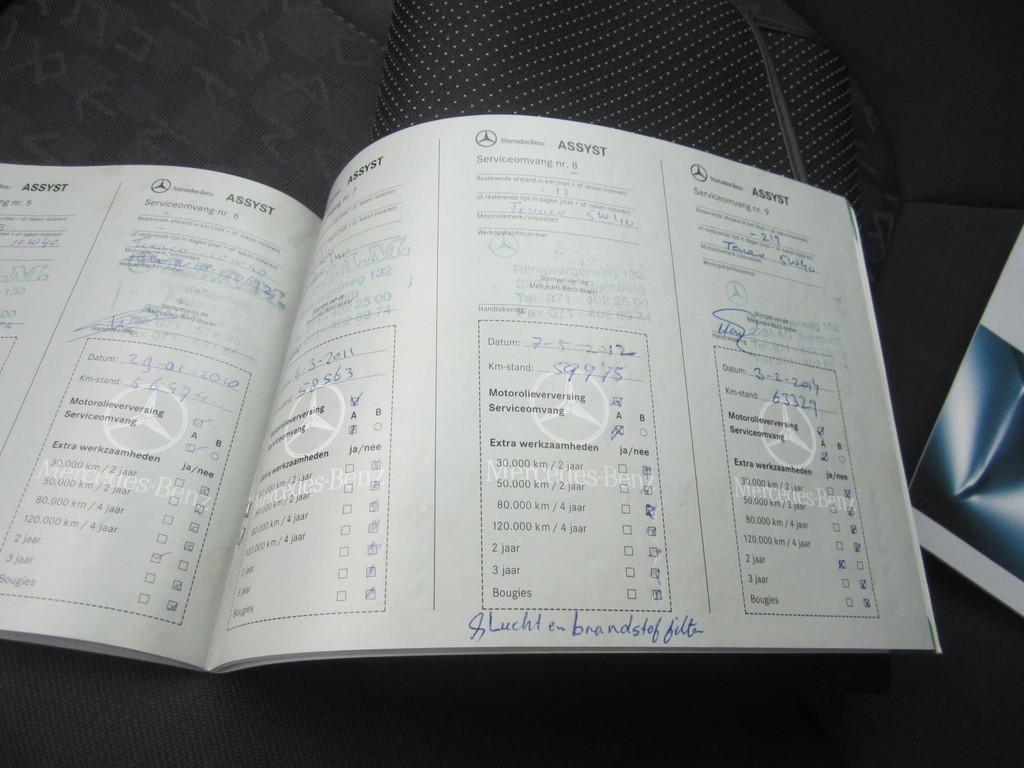 ASSYST
nr. 5
10W40
Mercedes-Benz ASSYST
Serviceomvang nr. 6
of resterende tijd in dagen (met + of -teken noteren)
Texaco
Stempel van de
Mercedes-Benz-dealer
Datum: 29-01-2010
Km-stand:
Motorolieverversing
Serviceomvang A B
Extra werkzaamheden ja/nee
30.000 km / 2 jaar
50.000 km / 2 jaar
80.000 km / 4 jaar
120.000 km / 4 jaar
2 jaar
3 jaar
Bougies
Mercedes-Benz
ASSYST
132
402 25 00
402 69 74
-3-2011
58563
Motorolieverversing
Serviceomvang A B
Extra werkzaamheden ja/nee
30.000 km / 2 jaar
50.000 km / 2 jaar
80.000 km / 4 jaar
120.000 km / 4 jaar
2 jaar
3 jaar
Bougies
Mercedes-Benz
Mercedes-Benz ASSYST
Serviceomvang nr. 8
Resterende afstand in km (met + of -teken noteren)
- 12
of resterende tijd in dagen (met + of -teken noteren)
Texaco 5W40
Motoroliemerk/viscositeit
Werkopdrachtnummer
Rijnsburgerweg 132
Stempel van de
Mercedes-Benz-dealer
Tel. 071 - 402 25 00
Fax 071 - 402 69 74
Handtekening:
Datum: 7-5-2012
Km-stand: 59975
Motorolieverversing
Serviceomvang A B
Extra werkzaamheden ja/nee
30.000 km / 2 jaar
50.000 km / 2 jaar
80.000 km / 4 jaar
120.000 km / 4 jaar
2 jaar
3 jaar
Bougies
Mercedes-Benz
Lucht en brandstof filter
Mercedes-Benz ASSYST
Serviceomvang nr. 9
Resterende afstand in km (met + of -teken noteren)
- 219
of resterende tijd in dagen (met + of -teken noteren)
Texaco 5W40
Motoroliemerk/viscositeit
Werkopdrachtnummer
Stempel van de
Mercedes-Benz-dealer
Handtekening:
Datum: 3-2-2014
Km-stand: 63329
Motorolieverversing
Serviceomvang A B
Extra werkzaamheden ja/nee
30.000 km / 2 jaar
50.000 km / 2 jaar
80.000 km / 4 jaar
120.000 km / 4 jaar
2 jaar
3 jaar
Bougies
Mercedes-Benz